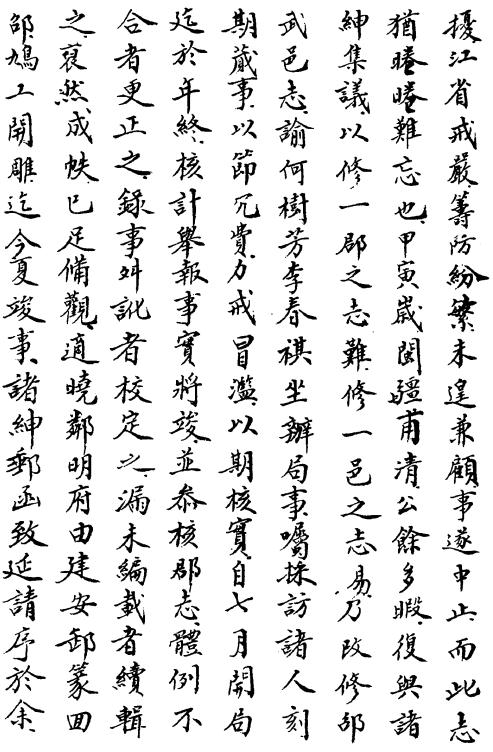 擾江省戒嚴籌防紛繁未遑兼顧事遂中止而此志
猶睠睠難忘也甲寅歲閩疆甫清公餘多暇復與諸
紳集議以修一郡之志難修一邑之志易乃改修邵
武邑志諭何樹芳李春祺坐辦局事囑採訪諸人刻
期蕆事以節冗費力戒冒濫以期核實自七月開局
迄於年終核計舉報事實將竣並參核郡志體例不
合者更正之錄事舛訛者校定之漏未編載者續輯
之裒然成帙已足備觀適曉鄰明府由建安卸篆回
邵鳩工開雕迄今夏竣事諸紳郵函致延請序於余